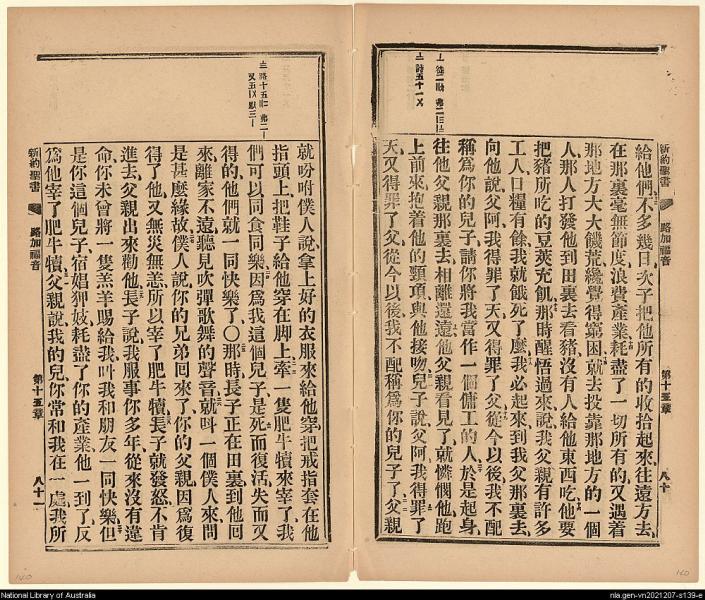 給他們、不多幾日、次子把他所有的收拾起來、往遠方去、
在那裏毫無節度、浪費產業、耗盡了一切所有的、又遇着
那地方大大饑荒、纔覺得窮困、就去投靠那地方的一個
人、那人打發他到田裏去看豬、沒有人給他東西吃、他要
把豬所吃的豆莢充飢、那時醒悟過來、說、我父親有許多
工人、口糧有餘、我就餓死了麼、我必起來、到我父那裏去、
向他說、父阿、我得罪了天、又得罪了父、從今以後、我不配
稱爲你的兒子、請你將我當作一個傭工的人、於是起身、
往他父親那裏去、相離還遠、他父親看見了、就憐憫他、跑
上前來、抱着他的頸項、與他接吻、兒子說、父阿、我得罪了
天、又得罪了父、從今以後、我不配稱爲你的兒子了、父親
新約聖書 路加福音 第十五章 八十
就吩咐僕人說、拿上好的衣服來給他穿、把戒指套在他
指頭上、把鞋子給他穿在脚上、牽一隻肥牛犢來宰了、我
們可以同食同樂、因爲我這個兒子、是死而復活、失而又
得的、他們就一同快樂了〇那時長子正在田裏、到他回
來、離家不遠、聽見吹彈歌舞的聲音、就呌一個僕人來問
是甚麼緣故、僕人說、你的兄弟回來了、你的父親、因爲復
得了他、又無災無恙、所以宰了肥牛犢、長子就發怒、不肯
進去、父親出來勸他、長子說、我服事你多年、從來沒有違
命、你未曾將一隻羔羊賜給我、叫我和朋友一同快樂、但
是你這個兒子、宿娼狎妓、耗盡了你的產業、他一到了、反
爲他宰了肥牛犢、父親說、我的兒、你常和我在一處、我所
新約聖書 路加福音 第十五章 八十一
National Library of Australia
nla.gen-vn2021207-s139-e